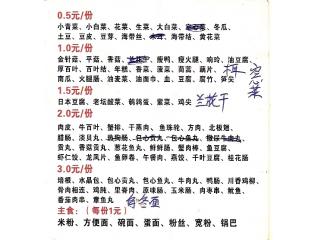 0.5元/份
小青菜、小白菜、花菜、生菜、大白菜、冬瓜、
土豆、豆皮、豆芽、海带丝、海带结、黄花菜
1.0元/份
金针菇、平菇、香菇、腐鸭、瘦火腿、响玲、油豆腐、
厚百叶、百叶结、年糕、香菜、菠菜、茼蒿、藕片、
南瓜、火腿肠、油麦菜、油面巾、血、豆腐、腐竹、笋尖
空心菜
1.5元/份
日本豆腐、老坛酸菜、鹌鹑蛋、紫菜、鸡尖 兰花干
2.0元/份
肉皮、牛百叶、蟹排、干燕肉、鱼珠轮、方肉、北极翅、
腊肠、淡贝丸、包心贡丸、
贡丸、香菇贡丸、葱花鱼丸、鲜鲜肠、蟹肉棒、鱼豆腐、
虾仁饺、龙凤片、鱼卵卷、午餐肉、燕饺、千叶豆腐、桂花肠
3.0元/份
培根、水晶包、包心贡丸、包心鱼丸、牛肉丸、鸭肠、川香鸡柳、
骨肉相连、鸡肫、里脊肉、原味肠、玉米肠、肉枣串、鱿鱼、
番茄肉串、章鱼丸
主食：（每份1元）
米粉、方便面、碗面、蛋面、粉丝、宽粉、锅巴